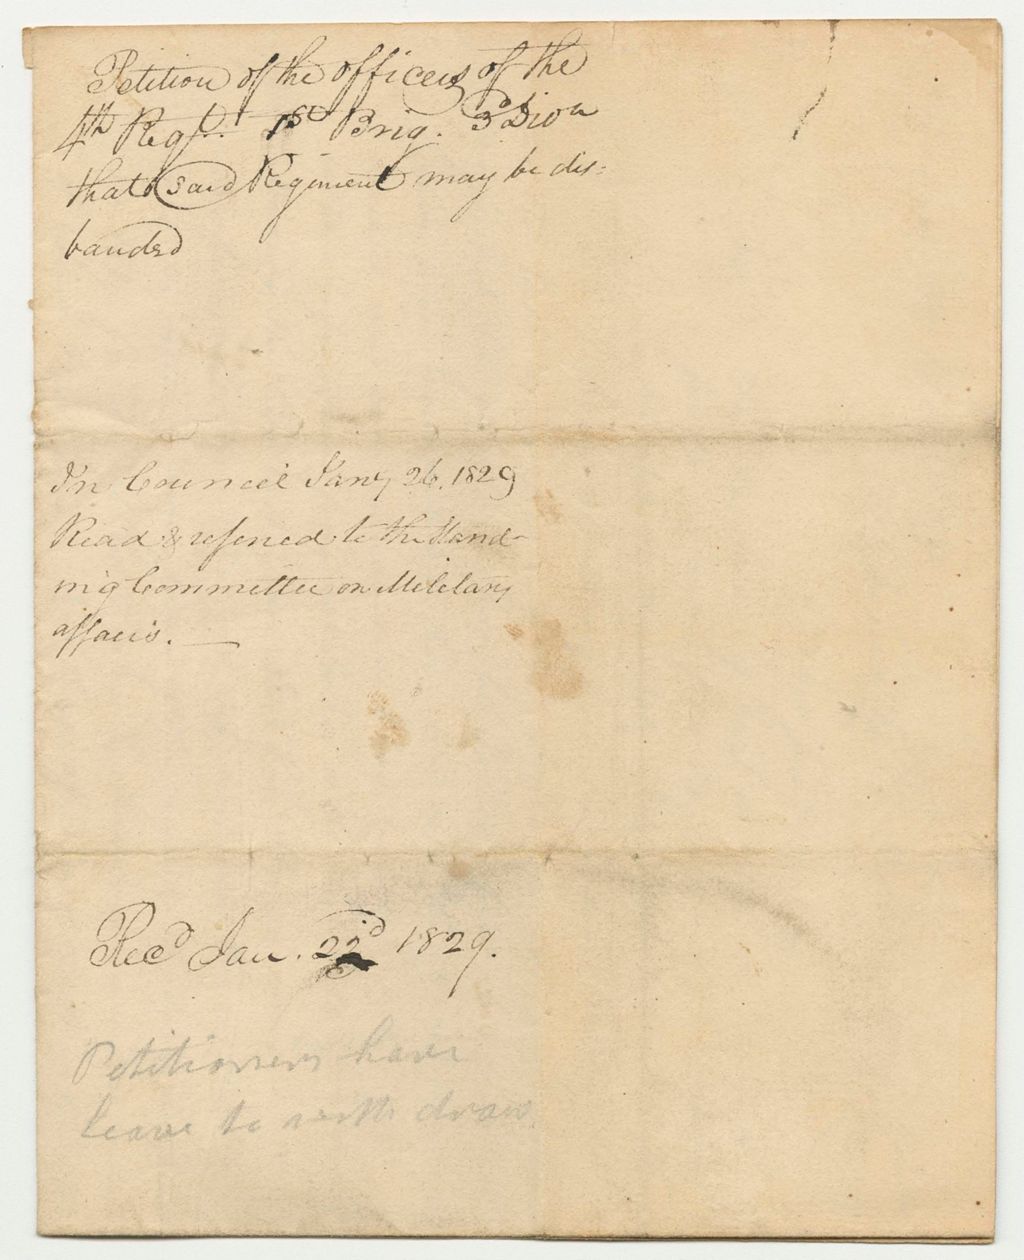 Petition of the officers of the
4th Regt. 1st Brig. 3d Dion
that said Regiment may be dis=
banded
In Council Jany 26. 1829
Read & refered to the stand-
ing Committee on Military
affairs.
Recd Jan. 22d 1829.
Petitioners have
leave to with draw